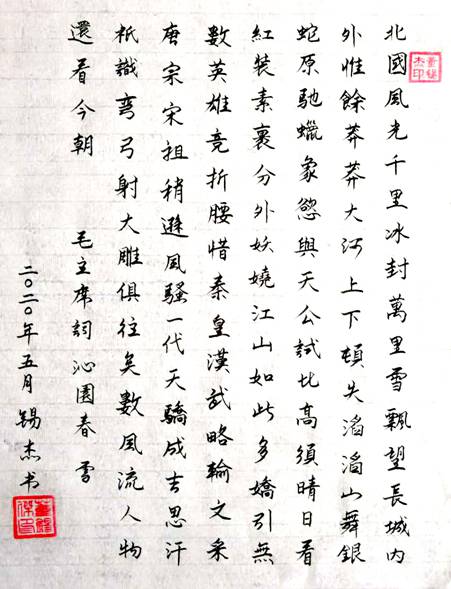 北國風光千里冰封萬里雪飄望長城内
外惟餘莽莽大河上下頓失滔滔山舞銀
蛇原馳蠟象慾與天公試比高須晴日看
紅裝素裹分外妖嬈江山如此多嬌引無
數英雄竞折腰惜秦皇漢武略輸文采
唐宗宋祖稍遜風騷一代天驕成吉思汗
祇識彎弓射大雕俱往矣數風流人物
還看今朝 毛主席詞沁園春雪
二〇二〇年五月錫杰书